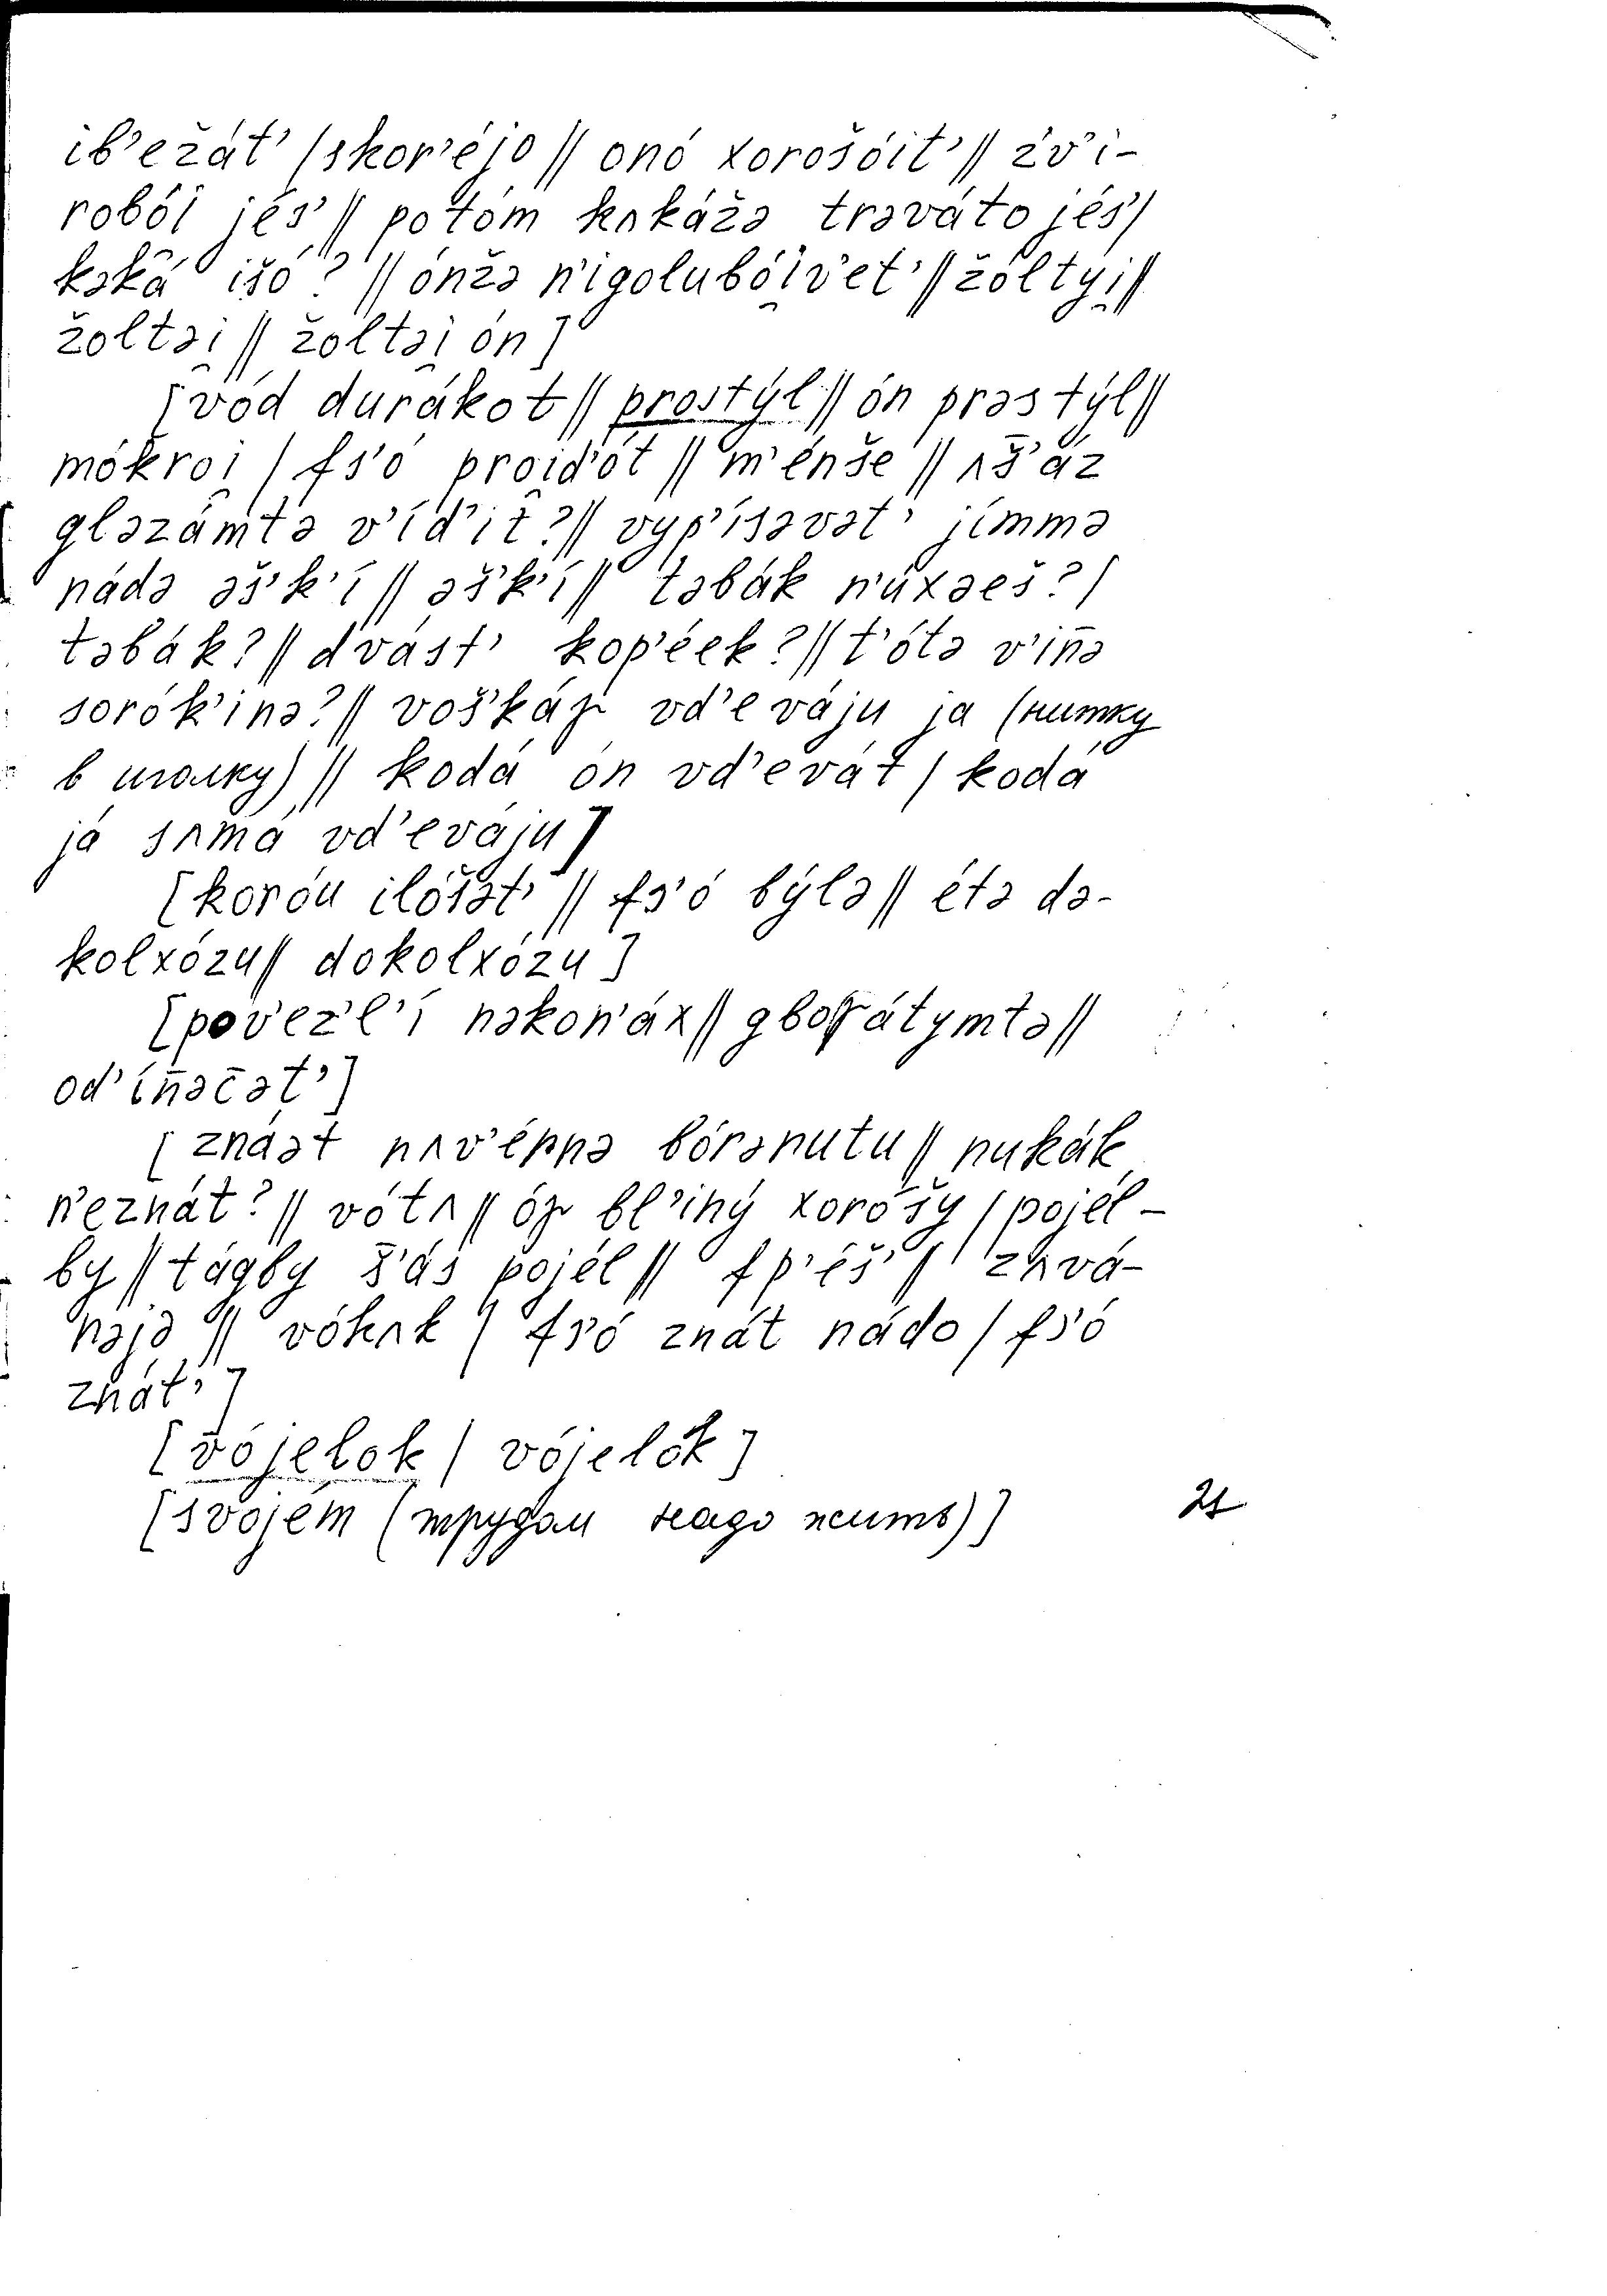 ib’ežát’ / skor’éjo // onó xorošóit’ // źv’i-
robói̯ jés’ // potóm kʌkážə trəváto jés’/
kəkā́ išó? // ónžə n’igolubói̯v’et’ // žóltyi̯ //
žoltəi̯ // žoltəi̯ ón]
[vód durákot // prostýl // ón prəstýl //
mókroi̯ / fs’ó proi̯d’ót // m’énše // ʌš̄’ás
gləzāmtə v’íd’it? // vyp’ísəvət’ jímmə
nádə əš’k’í // əš’k’í // təbák n’úxəeš? /
təbák? // dvást’ kop’éek? // t’ótə v’in̄ə
sorók’inə? // voš’káʒ́ vd’eváju ja (нитку
в иголку) // kodá ón vd’evát / kodá
já sʌmá vd’eváju]
[koróu ilóšət’ // fs’ó býlə // étə də-
kolxózu // dokolxózu]
[pov’ez’l’í nəkon’áx // gboɣátymtə //
od’ín̄əčət’]
[znáət nʌv’érnə bórənutu // nukák
n’eznát? // vótʌ // óʒ́ bl’iný xoróšy / pojél-
by // tágby š̄’ás pojél // fp’éš’ // zʌvá-
nəjə // vókʌk / fs’ó znát nádo / fs’ó
znát’]
[vójelok / vójelók]
[svojém (трудом надо жить)]
21